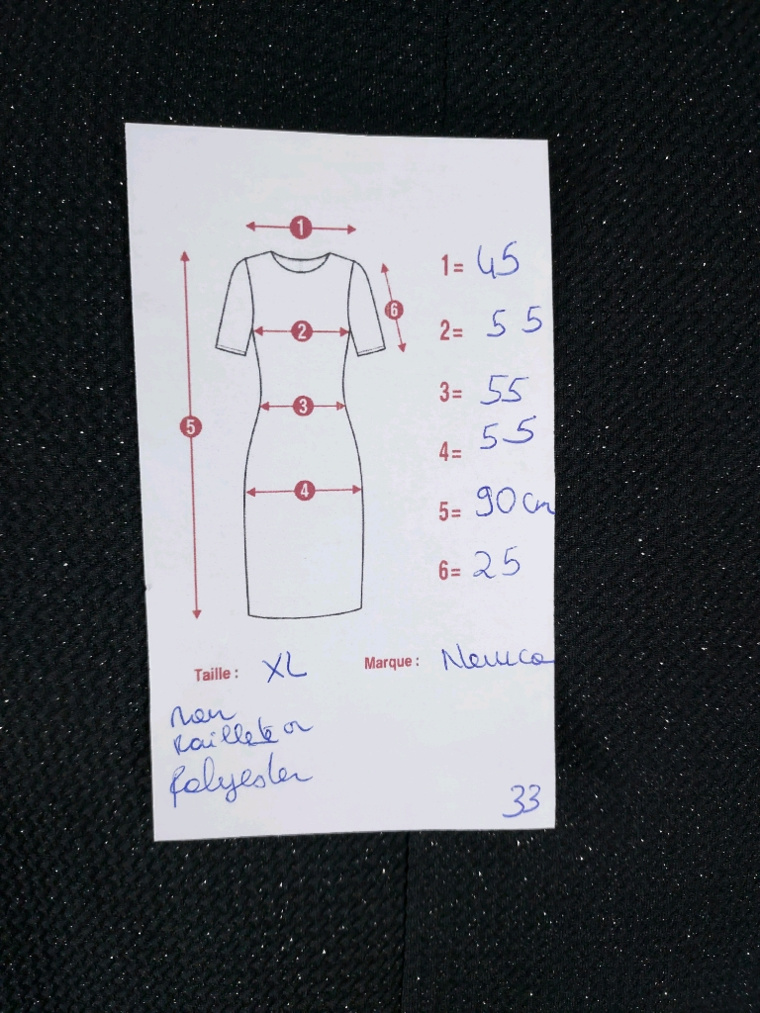 1
1= 45
6
2
2= 55
3
3= 55
5
4= 55
4
5= 90 cm
6= 25
Taille : XL
Marque :
Polyester
33